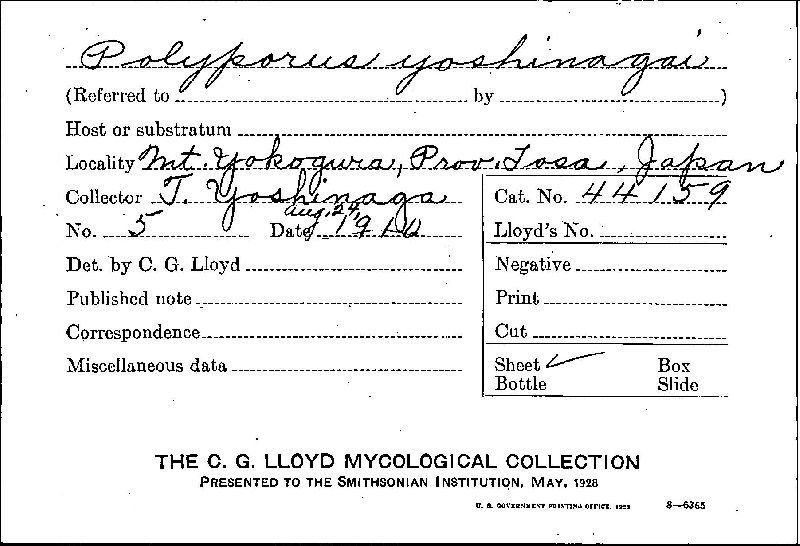 Polyporus yoshinagai
(Referred to by )
Host or substratum
Locality Mt. Yokogura, Prov. Tosa, Japan
Collector T. Yoshinaga
No. 5 Date Aug. 24, 1910
Det. by C. G. Lloyd
Published note
Correspondence
Miscellaneous data
Cat. No. 44159
Lloyd's No.
Negative
Print
Cut
Sheet ✓ Box
Bottle Slide
THE C. G. LLOYD MYCOLOGICAL COLLECTION
PRESENTED TO THE SMITHSONIAN INSTITUTION, MAY, 1928
U. S. GOVERNMENT PRINTING OFFICE, 1928 8—6365